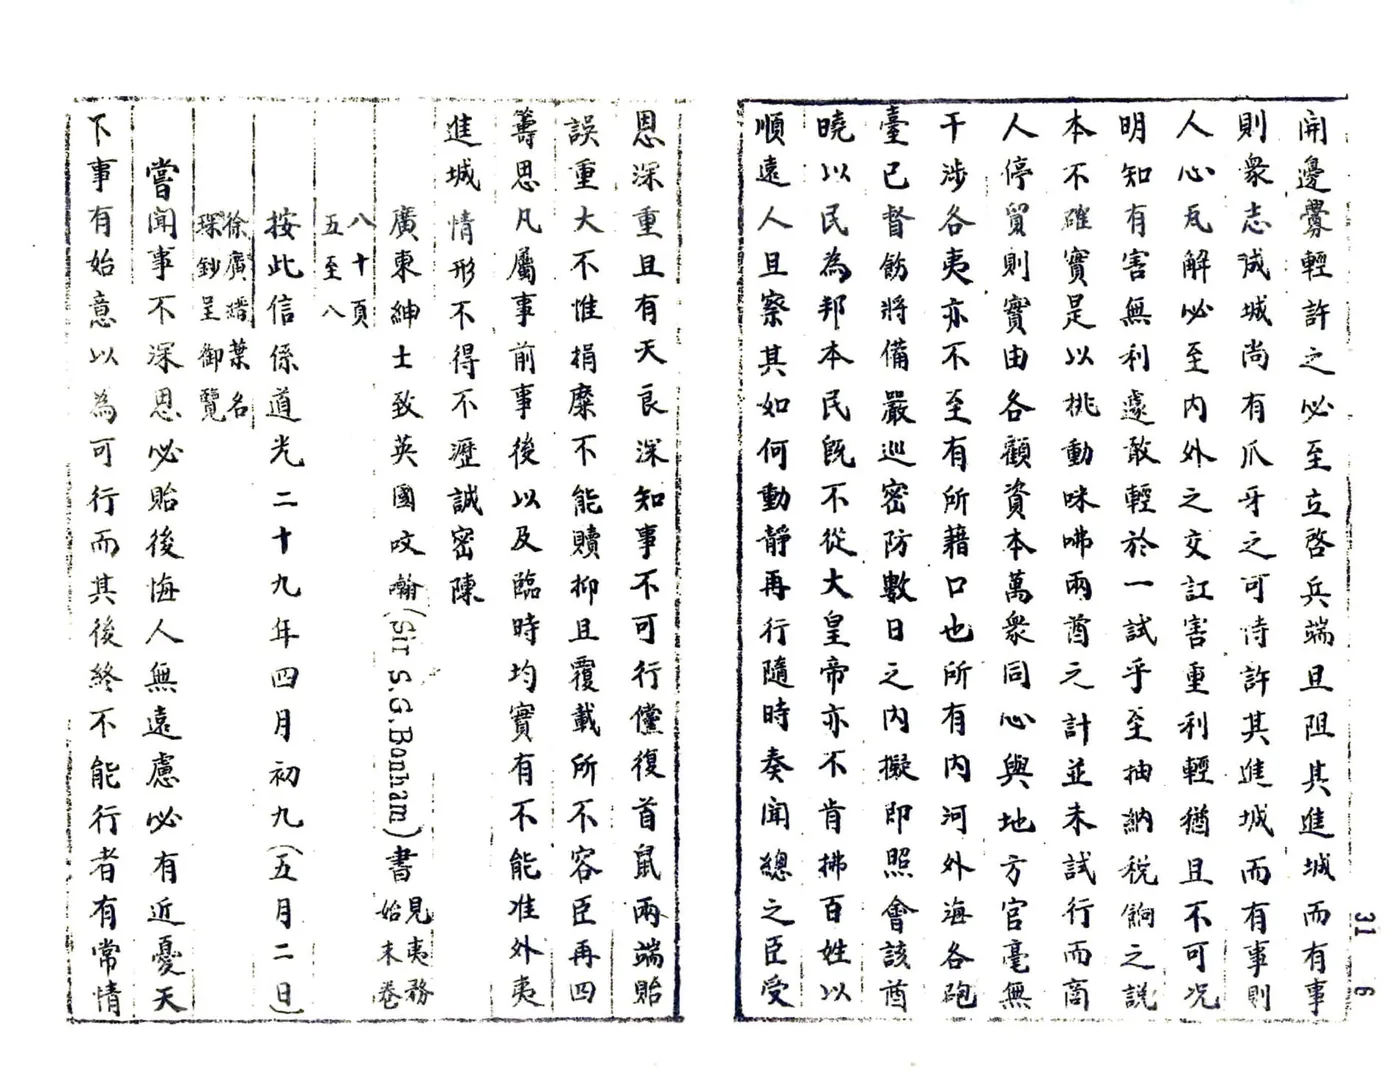 開邊釁輕許之必至立啓兵端且阻其進城而有事
則衆志成城尚有爪牙之可恃許其進城而有事則
人心瓦解必至內外之交訌害重利輕猶且不可況
明知有害無利遽敢輕於一試乎至抽納稅餉之說
本不確實是以挑動咪咈兩酋之計並未試行而商
人停貿則實由各顧資本萬衆同心與地方官毫無
干涉各夷亦不至有所藉口也所有內河外海各砲
臺已督飭將備嚴巡密防數日之內擬即照會該酋
曉以民為邦本民旣不從大皇帝亦不肯拂百姓以
順遠人且察其如何動靜再行隨時奏聞總之臣受
恩深重且有天良深知事不可行儻復首鼠兩端貽
誤重大不惟捐糜不能贖抑且覆載所不容臣再四
籌思凡屬事前事後以及臨時均實有不能准外夷
進城情形不得不瀝誠密陳
廣東紳士致英國文翰(Sir S.G.Bonham)書見夷務始末卷
八十頁五至八
按此信係道光二十九年四月初九(五月二日)
徐廣縉葉名琛鈔呈御覽
嘗聞事不深思必貽後悔人無遠慮必有近憂天
下事有始意以為可行而其後終不能行者有常情
31 6